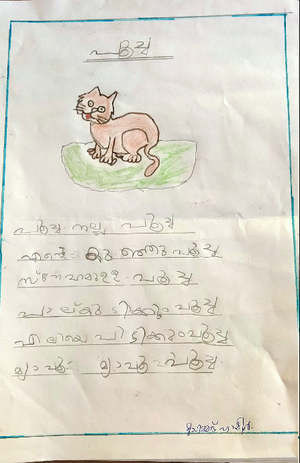 പൂച്ച
പൂച്ച നല്ല പൂച്ച
എന്റെ കുഞ്ഞു പൂച്ച
സ്നേഹമുള്ള പൂച്ച
പാല്കുടിക്കും പൂച്ച
എലിയെ പിടിക്കും പൂച്ച
മ്യാവൂ മ്യാവൂ പൂച്ച